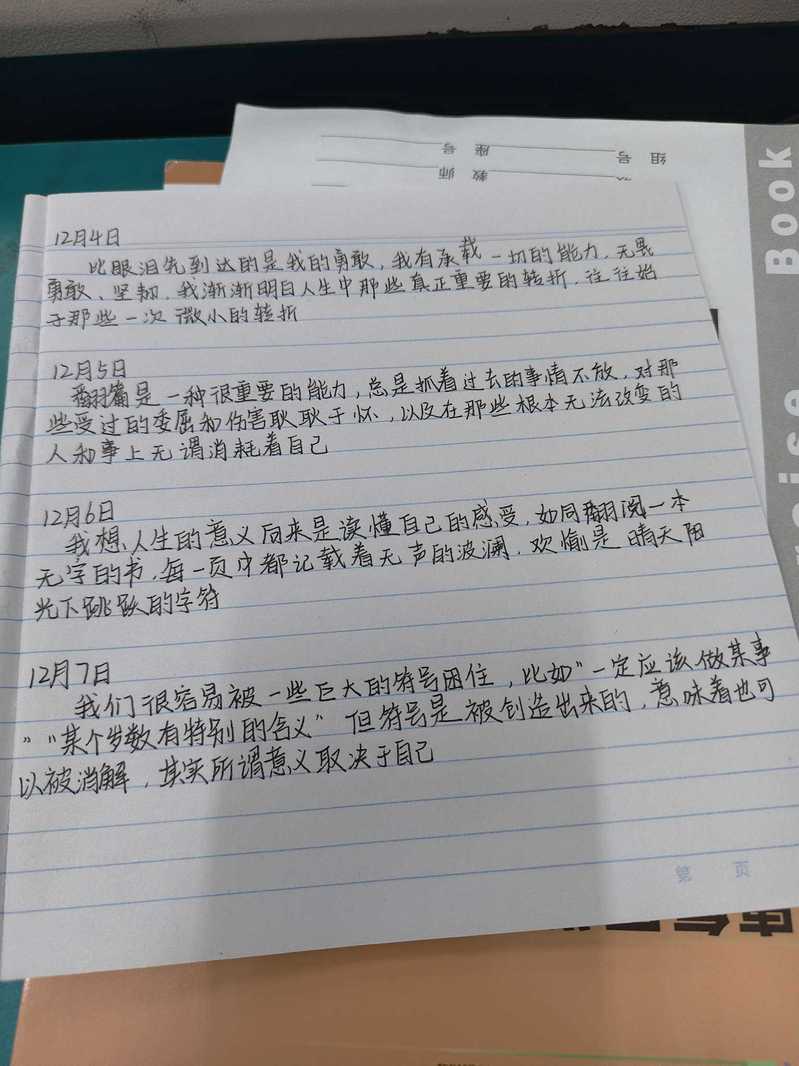 组 号
座 号
教 师
Book
12月4日
比眼泪先到达的是我的勇敢，我有承载一切的能力，无畏
勇敢、坚韧，我渐渐明白人生中那些真正重要的转折，往往始
于那些一次微小的转折
12月5日
翻篇是一种很重要的能力，总是抓着过去的事情不放，对那
些受过的委屈和伤害耿耿于怀，以及在那些根本无法改变的
人和事上无谓消耗着自己
12月6日
我想人生的意义向来是读懂自己的感受，如同翻阅一本
无字的书，每一页中都记载着无声的波澜，欢愉是晴天阳
光下跳跃的字符
12月7日
我们很容易被一些巨大的符号困住，比如"一定应该做某事
" "某个岁数有特别的含义" 但符号是被创造出来的，意味着也可
以被消解，其实所谓意义取决于自己
第 页